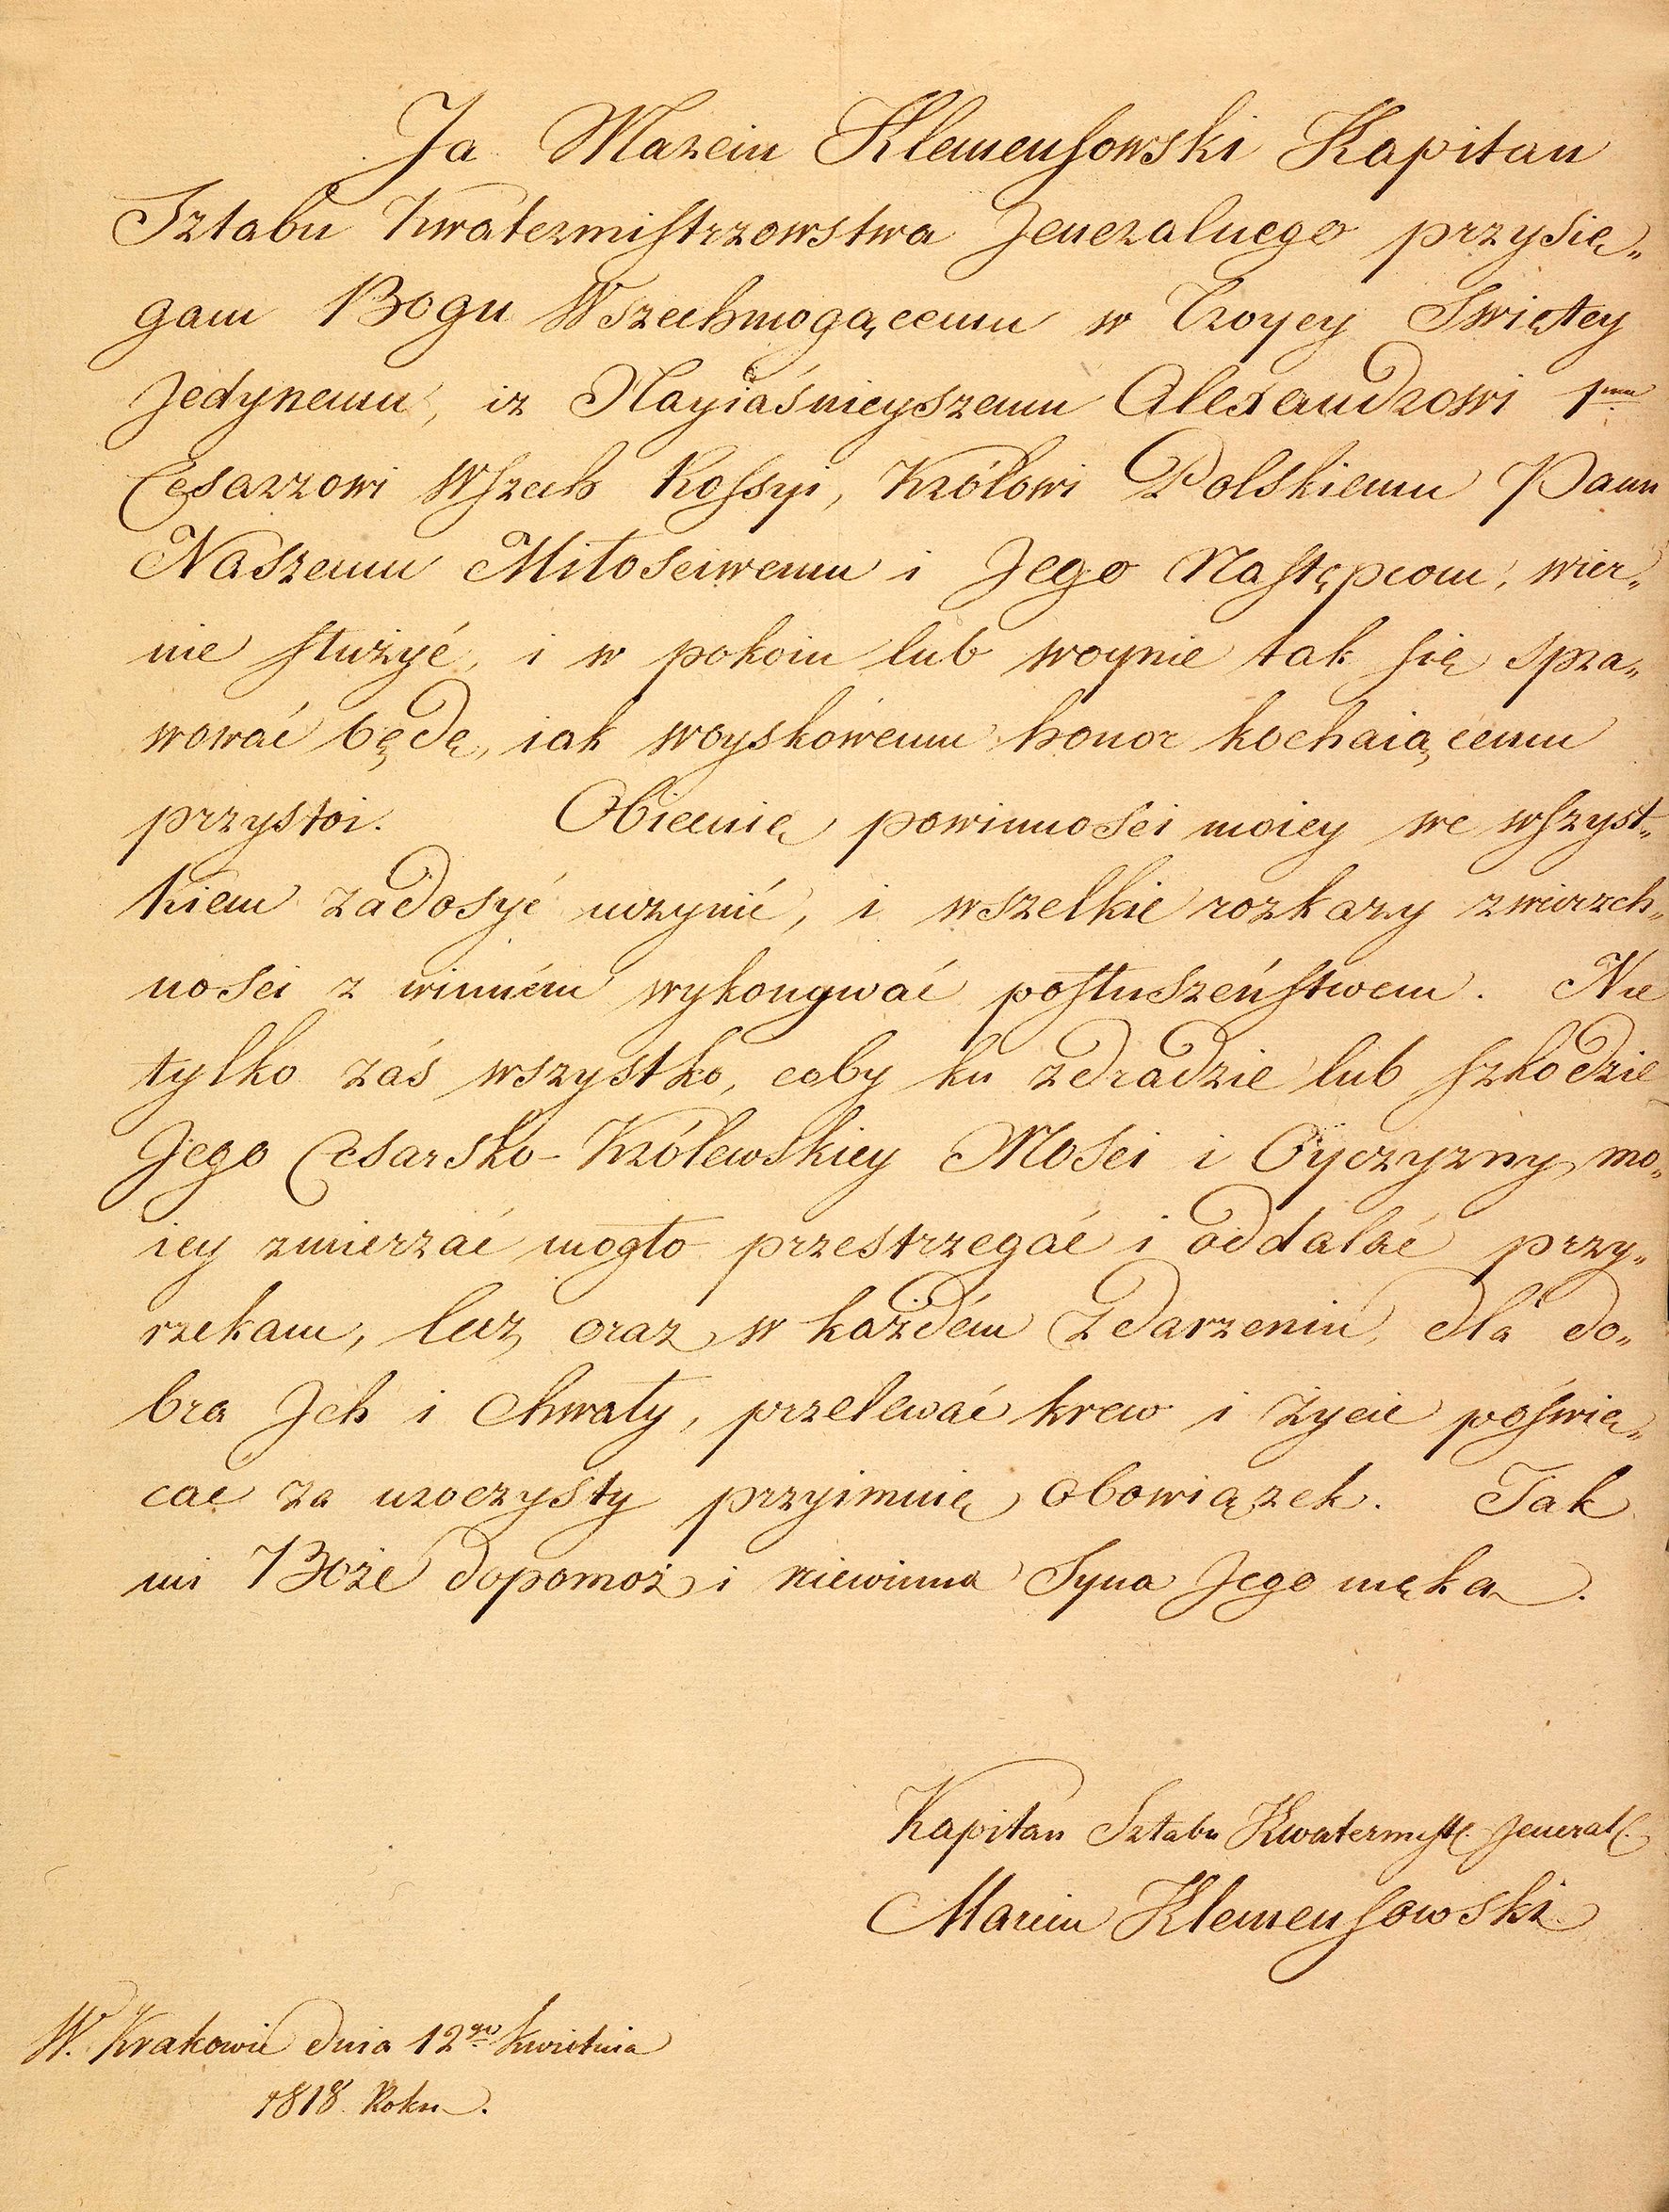 Ja Marcin Klemensowski Kapitan
Sztabu Kwatermistrzowstwa Jeneralnego przysię„
gam Bogu Wszechmogącemu w Troycy Swiętey
Jedynemu, iż Nayiaśnieyszemu Alexandrowi 1mu
Cesarzowi Wszech Rossyi, Królowi Polskiemu Panu
Naszemu Miłosciwemu i Jego Następcom, wier„
nie służyć, i w pokoiu lub woynie tak się spra„
wować będę, iak woyskowemu honor kochaiącemu
przystoi. Obiecuię powinnosci moiey we wszyst„
kiem zadosyć uczynić, i wszelkie rozkazy zwierzch„
nosci z winném wykonywać posłuszeństwem. Nie
tylko zaś wszystko, coby ku zdradzie lub szkodzie
Jego Cesarsko-Królewskiey Mosci i Oyczyzny mo„
iey zmierzać mogło przestrzegać i oddalać przy„
rzekam, lecz oraz w każdém zdarzeniu, dla do„
bra Jch i chwały, przelewać krew i życie poświę„
cać za uroczysty przyimuię obowiązek. Tak
mi Boże dopomoż i niewinna Syna Jego męka.
Kapitan Sztabu Kwatermist. Jenerał.
Marcin Klemensowski
W. Krakowie dnia 12go kwietnia
1818 Roku.